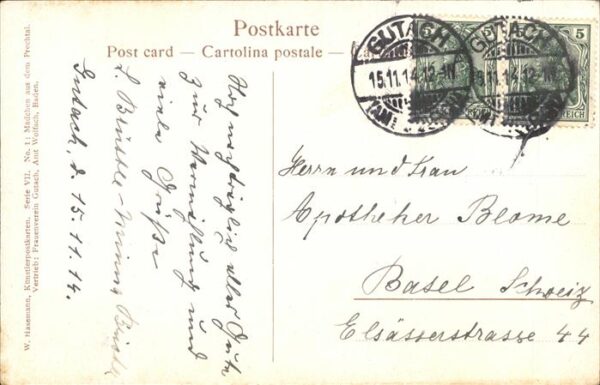 Postkarte
Post card — Cartolina postale —
GUTACH
15.11.14.12-1N
(AMT WOLFACH)
GUTACH
15.11.14.12-1N
(AMT WOLFACH)
5
REICH
W. Hasemann, Künstlerpostkarten. Serie VII. No. 1: Mädchen aus dem Prechtal.
Vertrieb: Frauenverein Gutach, Amt Wolfach, Baden.
Gutach, d. 15.11.14.
alles Gute
zur
und
viele Grüße
Herrn und Frau
Apotheker Blome
Basel Schweiz
Elsässerstrasse 44